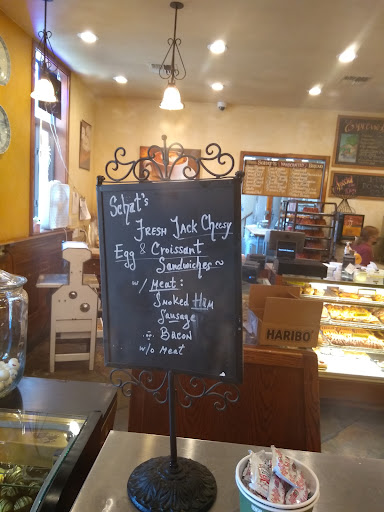 Schat's
Fresh Jack Cheesy
Egg & Croissant
Sandwiches ~
w/ Meat:
Smoked Ham
Sausage
Bacon
w/o Meat
HARIBO